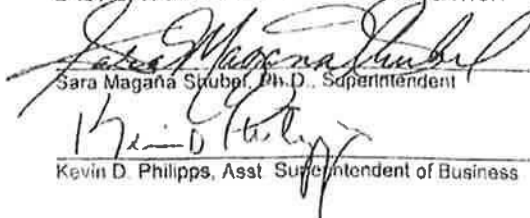 Sara Magaña Shubel
Sara Magaña Shubel, Ph.D., Superintendent
Kevin D Philipps
Kevin D. Philipps, Asst Superintendent of Business